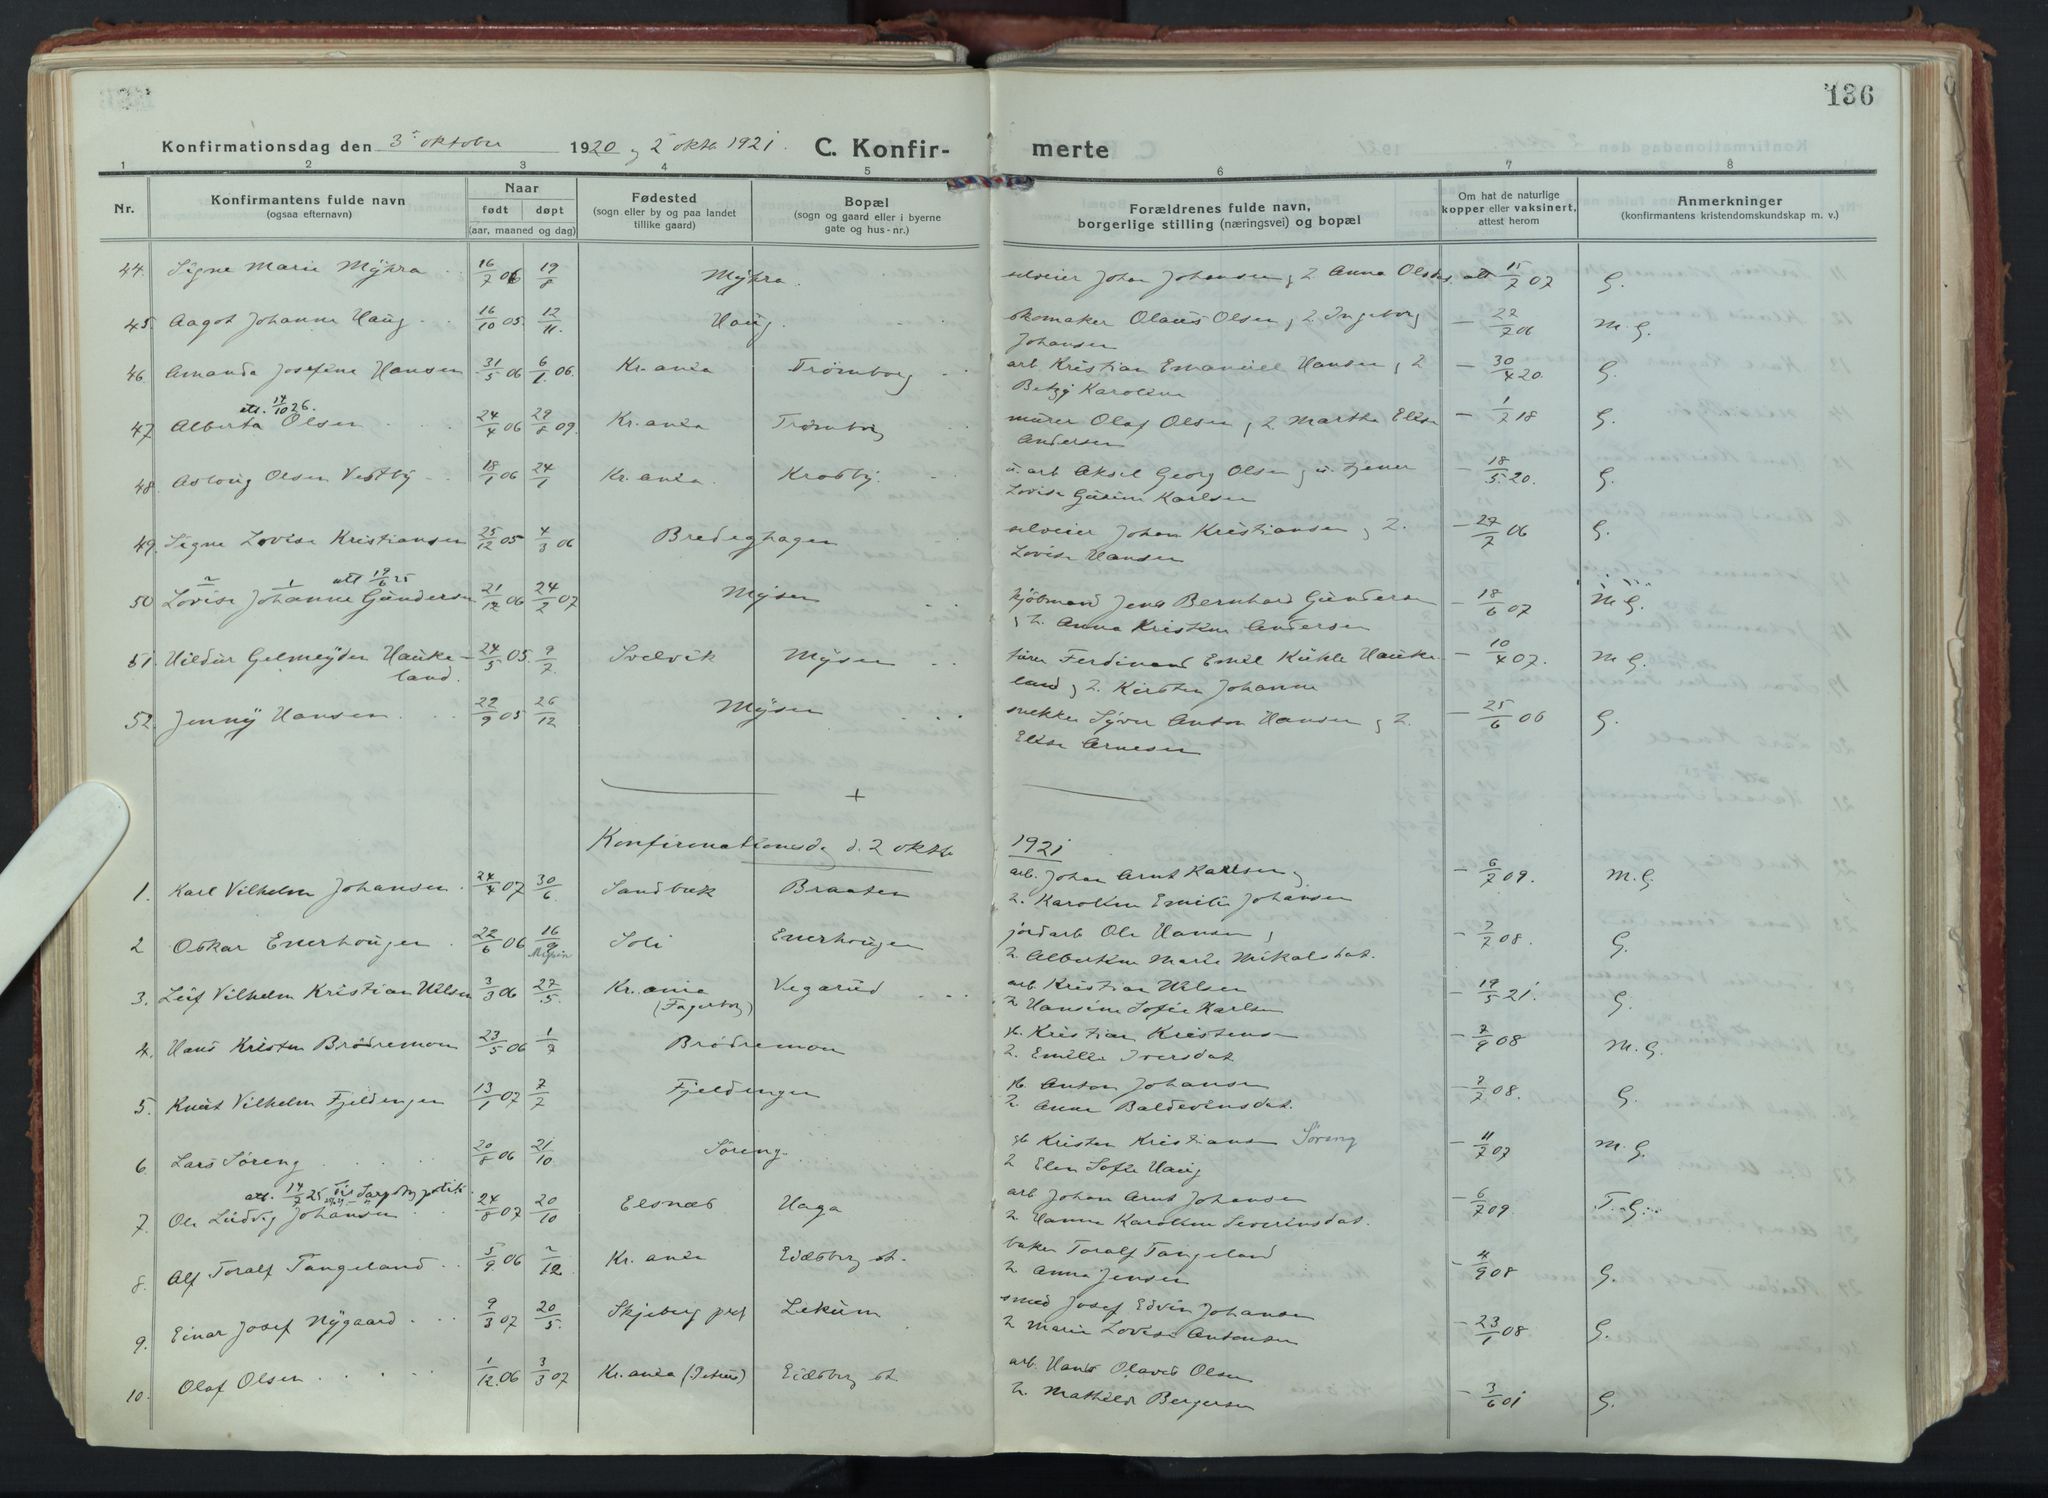 136
Konfirmationsdag den 3 oktober 1920 og 2 oktb 1921. C. Konfirmerte
1 2 3 4 5 6 7 8
Nr. Konfirmantens fulde navn (ogsaa efternavn) Naar født døpt (aar, maaned og dag) Fødested (sogn eller by og paa landet tillike gaard) Bopæl (sogn og gaard eller i byerne gate og hus-nr.) Forældrenes fulde navn, borgerlige stilling (næringsvei) og bopæl Om hat de naturlige kopper eller vaksinert, attest herom Anmerkninger (konfirmantens kristendomskundskap m. v.)
44. Signe Marie Myhra 16/7 06 19/8 Myhra. selveier Johan Johansen og h. Anna Olsdat. att 15/7 07 G.
45. Aagot Johanne Haug 16/10 05. 12/11. Haug. skomaker Olaus Olsen og h. Ingeborg — 22/7 06 M. G.
Johansen
46 Amanda Josefine Hansen 31/5 06 6/1 06. Kr.ania Trømborg arb Kristian Emanuel Hansen og h — 30/4 20. G.
Betzy Karoline
att. 14/10 26.
47 Alberta Olsen 24/4 06 29/8 09. Kr.ania Trømborg murer Olaf Olsen og h. Martha Elise — 1/7 18 G.
Andersen
48. Aslaug Olsen Vestby 18/1 06 24/1 Kr.ania. Krosby. u. arb Aksel Georg Olsen og u. tjener — 18/5 20. G.
Lovise Gusine Karlsen
49. Signe Lovise Kristiansen 25/12 05 4/3 06 Bredeghagen selveier Johan Kristiansen og h. — 27/7 06 G.
Lovise Hansen
att 19/6 25
50 Lovise Johanne Gundersen 21/12 06 24/2 07 Mysen kjøbmand Jens Bernhard Gundersen — 18/6 07 M G.
og h. Anna Kristine Andersen
51. Hildur Gelmeyden Hauke- 24/5 05. 9/7 Svelvik Mysen Ferdinand Emil Kühle Hauke- — 10/4 07. M G.
land. land og h. Kirsten Johanne
52. Jenny Hansen 22/9 05 26/12 Mysen snekker Syver Anton Hansen og h. — 25/6 06 G.
Elise Arnesen
+
Konfirmationsdag d. 2 oktb 1921
1. Karl Vilhelm Johansen 24/4 07 30/6 Sandbæk Braaten arb. Johan Arnt Karlsen og — 6/7 09. M. G
h. Karoline Emilie Johansen
2 Oskar Enerhougen 22/6 06 16/9 Mysen Soli Enerhougen jordarb Ole Hansen og — 7/7 08. G.
h. Albertine Marie Mikalsdat.
3. Leif Vilhelm Kristian Nilsen 3/3 06 27/5. Kr.ania (Fagerborg) Vegarud arb. Kristian Nilsen — 19/5 21. G.
h Hansine Sofie Karlsen
4. Hans Kristen Brødremoen 23/5 06 1/7 Brødremoen gb. Kristian Kristensen — 7/9 08 M. G.
h. Emilie Iversdat.
5. Knut Vilhelm Fjeldengen 13/1 07 7/7 Fjeldengen gb. Anton Johansen — 7/7 08. G.
h. Anne Baldevinsdat.
6. Lars Søreng 20/8 06 21/10 Søreng. gb Kristen Kristiansen Søreng — 11/7 07 M. G.
h Elen Sofie Haug
att. 14/7 25 til Sarpsborg politi
7. Ole Ludvig Johansen 24/8 07 20/10 Elsnes Haga arb Johan Arnt Johansen — 6/7 09. T. G.
h Hanna Karoline Severinsdat.
8. Alf Toralf Tangeland 5/9 06 2/12 Kr. ania Eidsberg st. baker Toralf Tangeland — 4/9 08 G.
h. Anna Jensen
9. Einar Josef Nygaard 9/3 07 20/5. Skjeberg pgj Lekum smed Josef Edvin Johansen — 23/1 08 G.
h Marie Lovise Antonsen
10. Olaf Olsen 1/12 06 3/3 07 Kr.ania (Petrus) Eidsberg st arb. Hans Olavus Olsen — 3/6 01 G.
h. Mathilde Bergersen